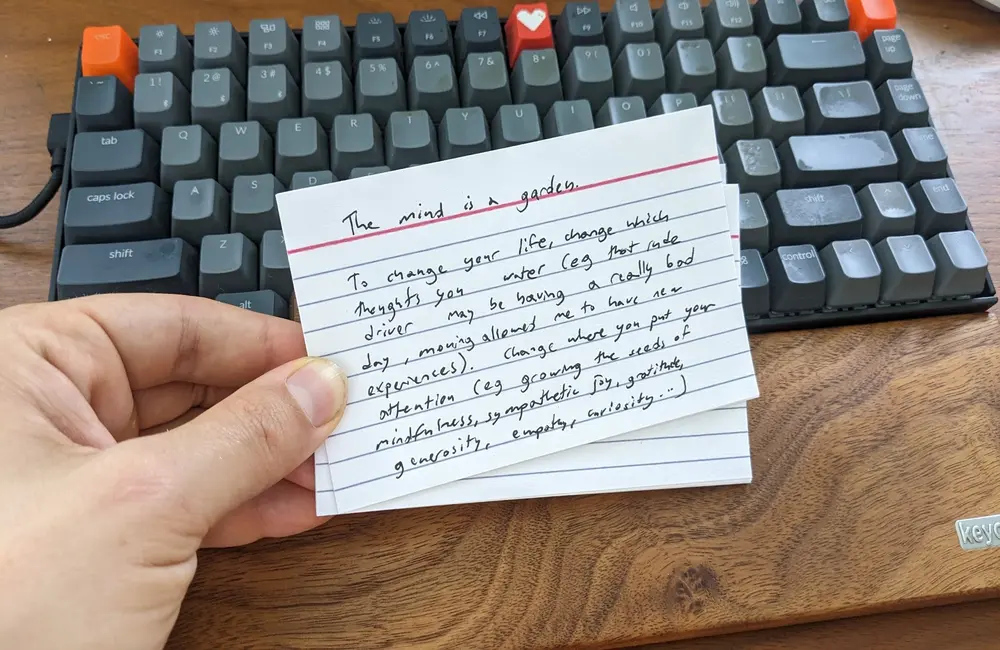 esc F1 F2 F3 F4 F5 F6 F7 F9 F10 F11 F12
1! 2@ 3# 4$ 5% 6^ 7& 8* 9( 0) page up
tab Q W E R T Y U I O P page down
caps lock A S D end
shift Z shift
alt control
The mind is a garden.
To change your life, change which
thoughts you water (eg that rude
driver may be having a really bad
day, moving allowed me to have new
experiences). Change where you put your
attention (eg growing the seeds of
mindfulness, sympathetic joy, gratitude,
generosity, empathy, curiosity...)
keyc